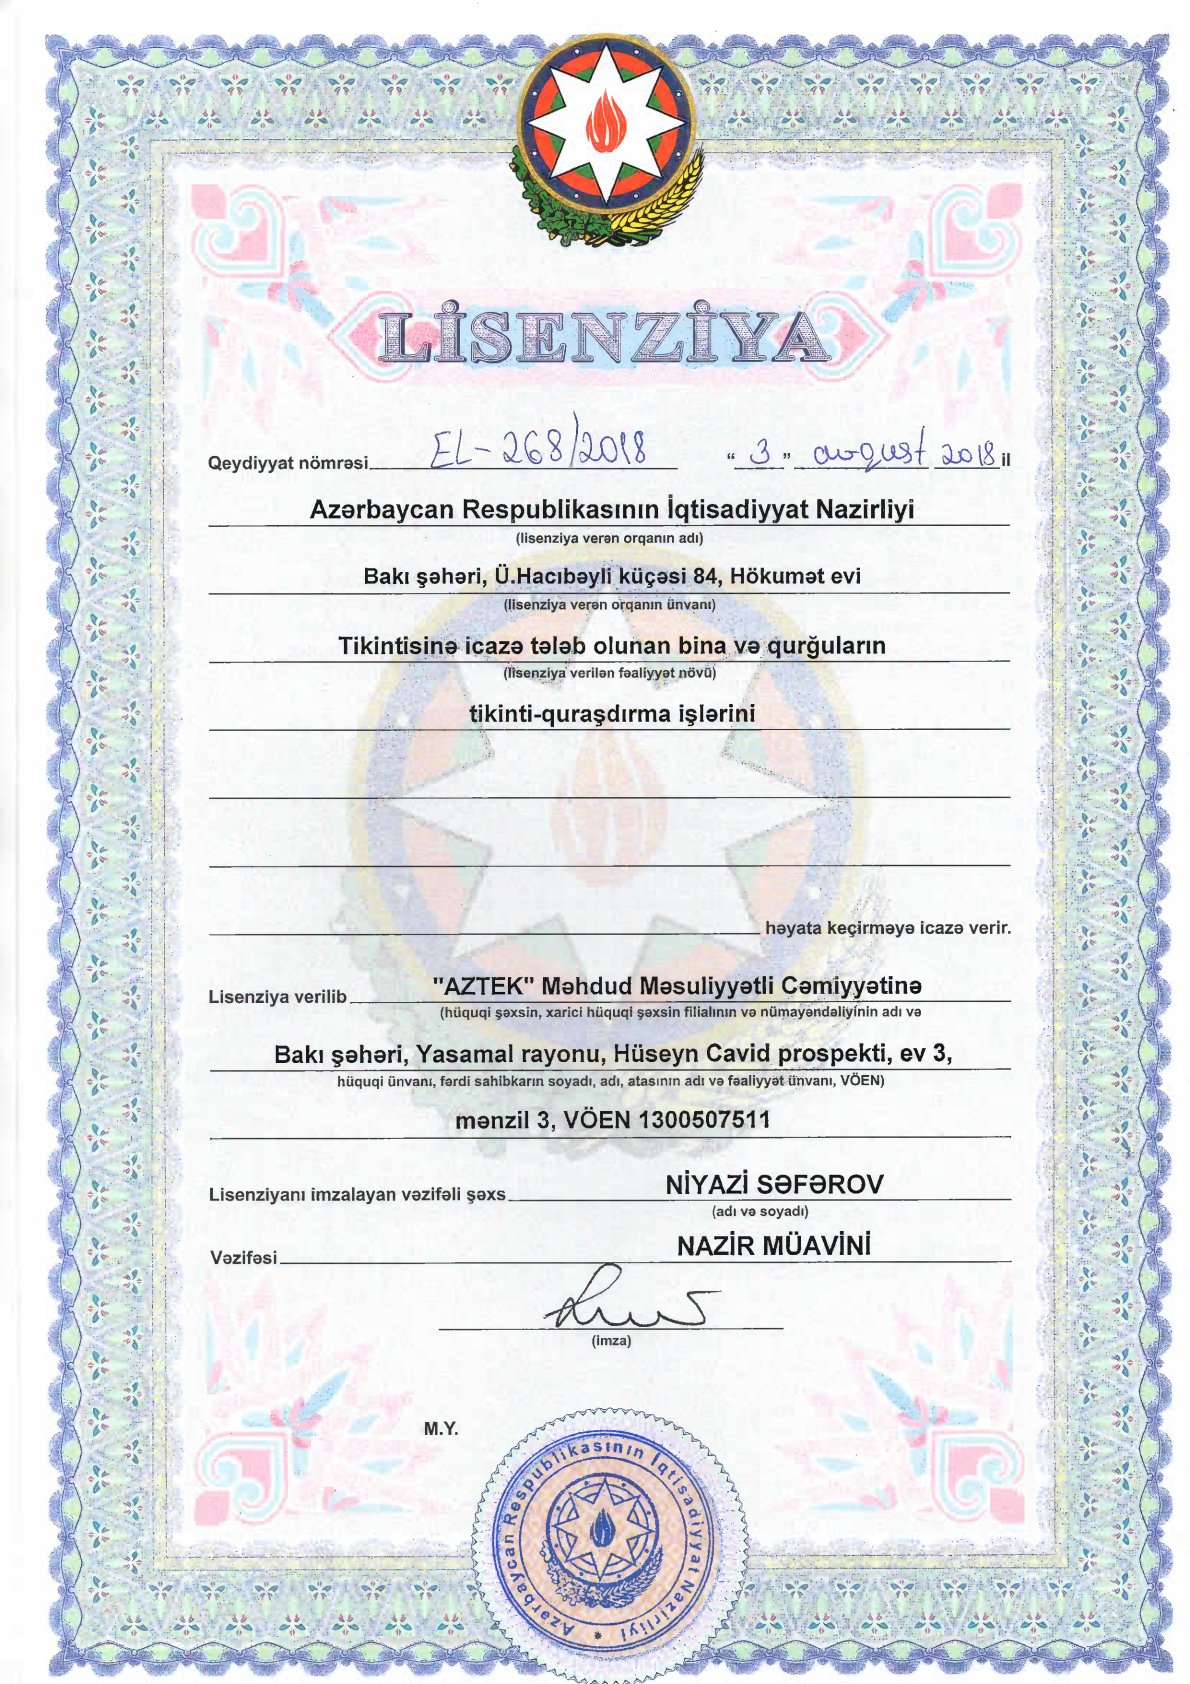 LİSENZİYA
Qeydiyyat nömrəsi EL-268/2018 “ 3 ” avqust 2018 il
Azərbaycan Respublikasının İqtisadiyyat Nazirliyi
(lisenziya verən orqanın adı)
Bakı şəhəri, Ü.Hacıbəyli küçəsi 84, Hökumət evi
(lisenziya verən orqanın ünvanı)
Tikintisinə icazə tələb olunan bina və qurğuların
(lisenziya verilən fəaliyyət növü)
tikinti-quraşdırma işlərini
həyata keçirməyə icazə verir.
Lisenziya verilib "AZTEK" Məhdud Məsuliyyətli Cəmiyyətinə
(hüquqi şəxsin, xarici hüquqi şəxsin filialının və nümayəndəliyinin adı və
Bakı şəhəri, Yasamal rayonu, Hüseyn Cavid prospekti, ev 3,
hüquqi ünvanı, fərdi sahibkarın soyadı, adı, atasının adı və fəaliyyət ünvanı, VÖEN)
mənzil 3, VÖEN 1300507511
Lisenziyanı imzalayan vəzifəli şəxs NİYAZİ SƏFƏROV
(adı və soyadı)
Vəzifəsi NAZİR MÜAVİNİ
(imza)
M.Y.
Azərbaycan Respublikasının İqtisadiyyat Nazirliyi *